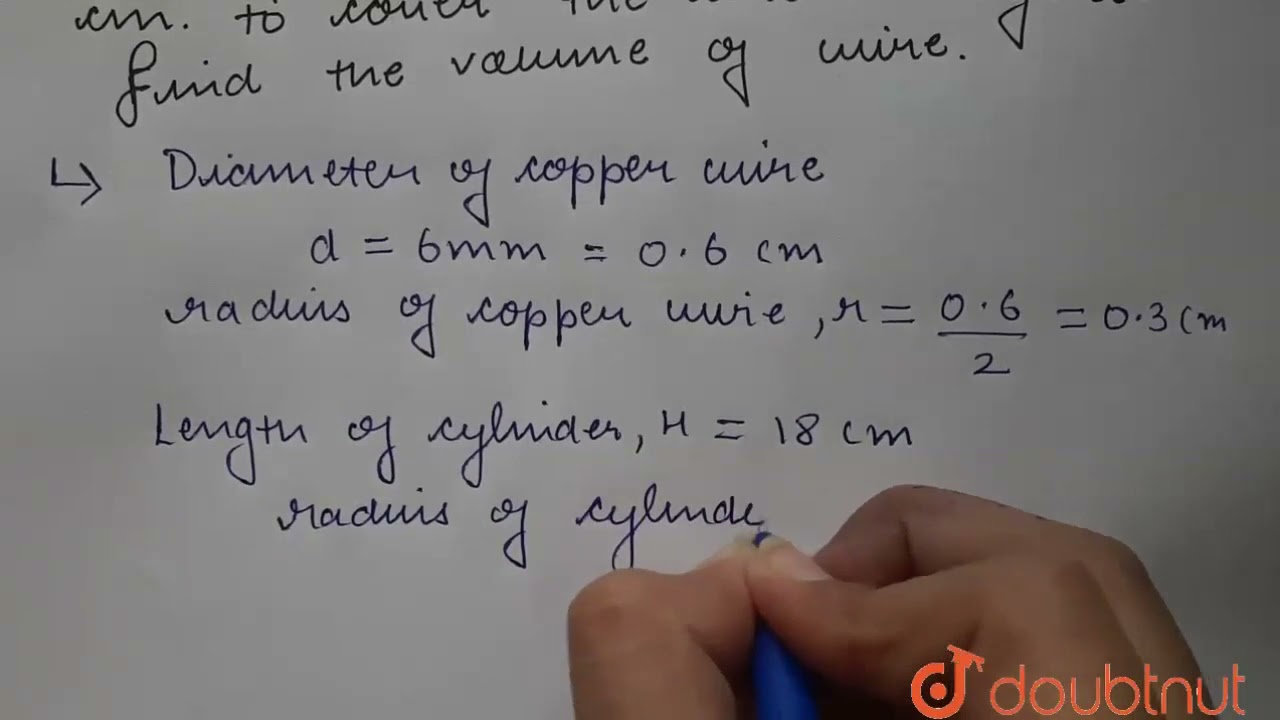 cm. to cover the
find the volume of wire.
↳ Diameter of copper wire
d = 6mm = 0.6 cm
radius of copper wire, r = 0.6/2 = 0.3 cm
Length of cylinder, H = 18 cm
radius of cylinde
doubtnut